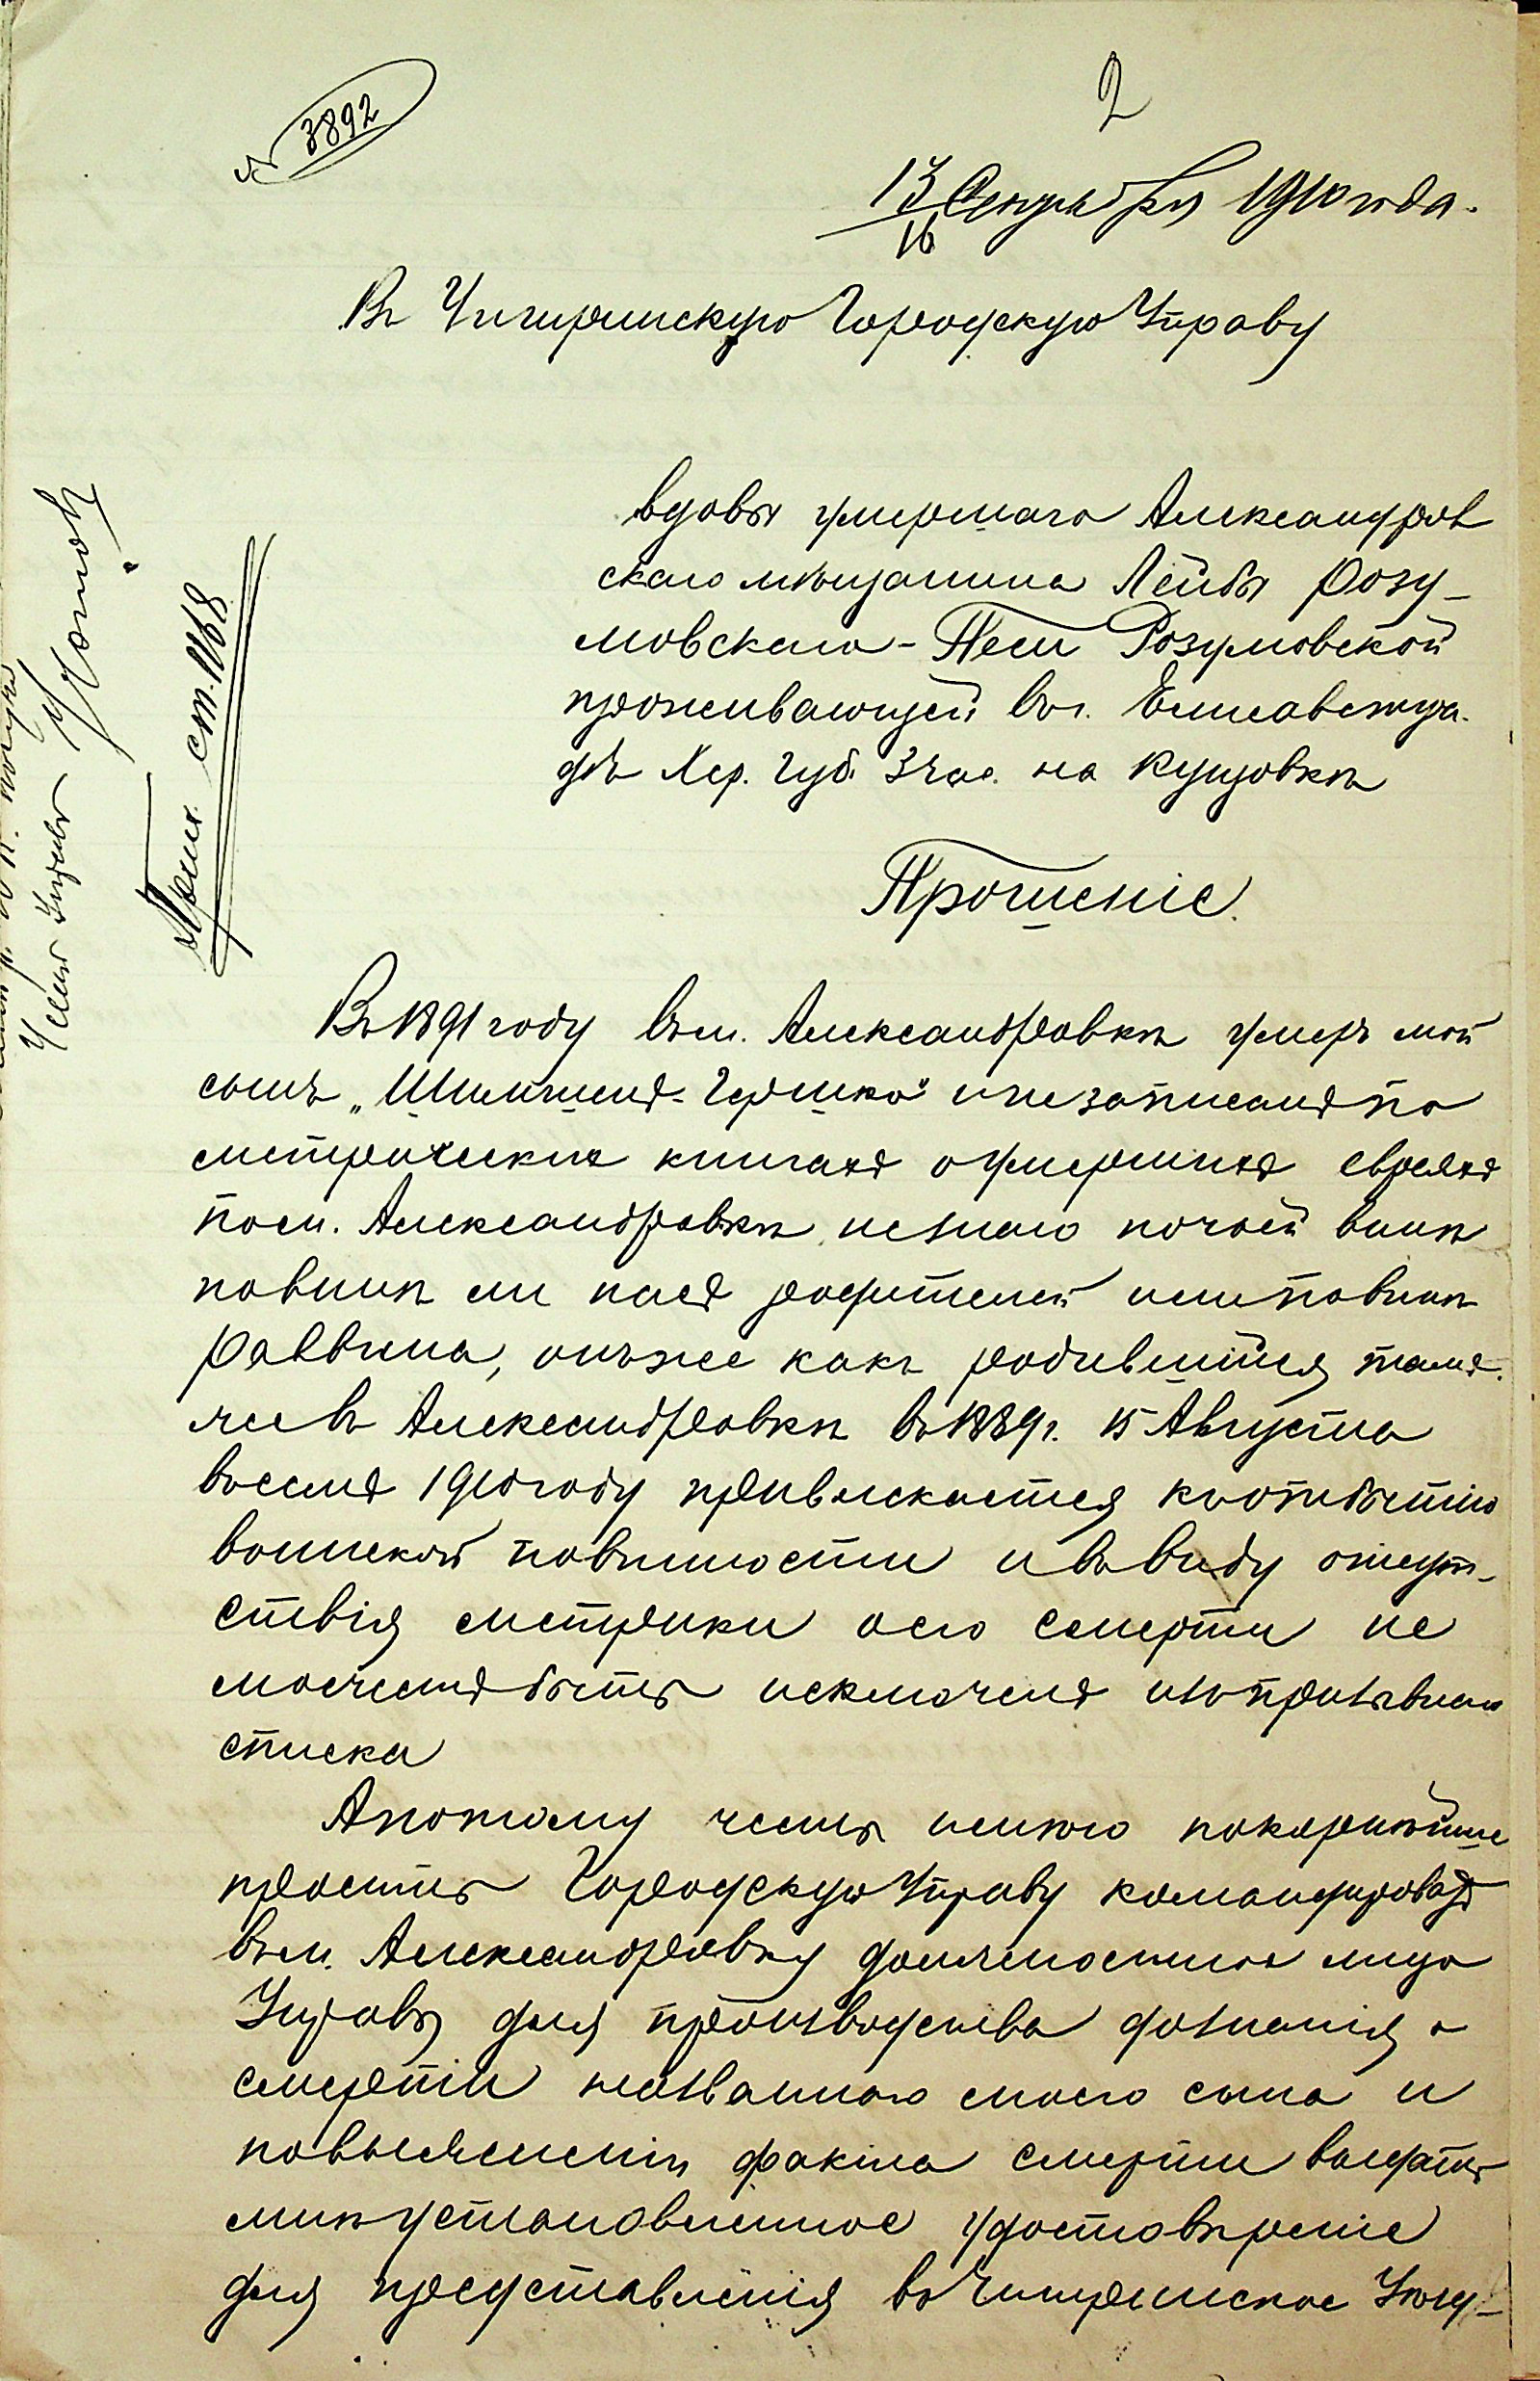 2
№ 3892
13/16 Сентября 1910 года.
Въ Чигиринскую Городскую Управу
вдовы умершаго Александров
скаго мѣщанина Лейбы Розу-
мовскаго - Песи Розумовской
проживающей въ г. Елисаветгра-
дѣ Хер. губ. 3 час. на Кущовкѣ
Прошеніе.
Въ 1891 году въ м. Александровкѣ умеръ мой
сынъ „Шимшонъ-Гершко" и не записанъ по
метрическихъ книгахъ о умершихъ евреяхъ
по м. Александровкѣ, не знаю по чьей винѣ
по винѣ ли насъ родителей или по винѣ
Раввина, онъ же какъ родившійся тамъ-
же въ Александровкѣ въ 1889 г. 15 Августа
въ семъ 1910 году привлекается къ отбытію
воинской повинности и въ виду отсут-
ствія метрики о его смерти не
можетъ быть исключенъ изъ призывнаго
списка
А потому честь имѣю покорнѣйше
просить Городскую Управу командировать
въ м. Александровку должностное лицо
Управы для производства дознанія о
смерти названнаго моего сына и
по выясненіи факта смерти выдать
мнѣ установленное удостовѣреніе
для представленія въ Чигиринское Уѣзд-
Прил. ст. 1168
Члены Управы